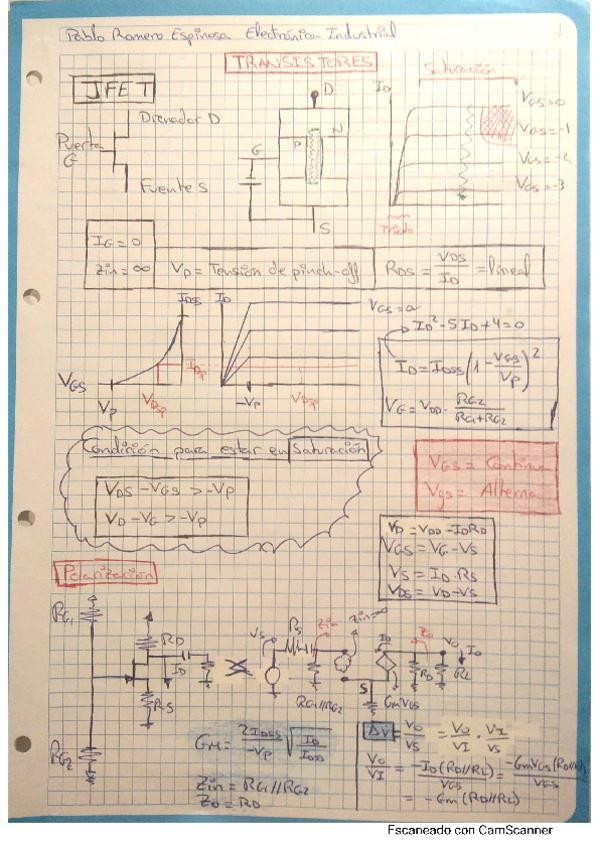 Pablo Romero Espinosa Electrónica Industrial
TRANSISTORES
JFET
Drenador D
Puerta
G
Fuente S
D
G
P
N
S
ID
Saturación
VGS=0
VGS=-1
VGS=-2
VGS=-3
Triodo
IG=0
Zin=∞
VP= Tensión de pinch-off
RDS = VDS/ID = lineal
IDSS
ID
VGS=0
IDQ
VGS
VP
-VP
ID²-5ID+4=0
ID=IDSS(1-VGS/VP)²
VG=VDD·RG2/(RG1+RG2)
Condición para estar en Saturación
VDS-VGS>-VP
VD-VG>-VP
VGS= Continua
Vgs= Alterna
VD=VDD-IDRD
VGS=VG-VS
VS=ID·RS
VDS=VD-VS
Polarización
RG1
RD
ID
RS
RG2
Vs
Rs
Zin
Zin=∞
RG1//RG2
S
GmVGS
Zo
RD
Vo
Io
RL
Gm= 2IDSS/-VP √(ID/IDSS)
Zin= RG1//RG2
Zo=RD
Δv = Vo/Vs = Vo/VI · VI/Vs
Vo/VI = -ID(RD//RL)/VGS = -GmVGS(RD//RL)/VGS
= -Gm(RD//RL)
Escaneado con CamScanner